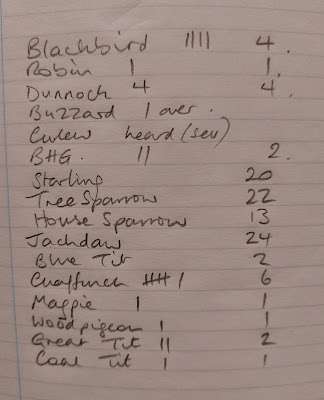 Blackbird |||| 4.
Robin | 1.
Dunnock 4 4.
Buzzard 1 over.
Curlew heard (sev)
BHG. || 2.
Starling 20
Tree Sparrow 22
House Sparrow 13
Jackdaw 24
Blue Tit 2
Chaffinch |||| | 6
Magpie | 1
Woodpigeon | 1
Great Tit || 2
Coal Tit | 1